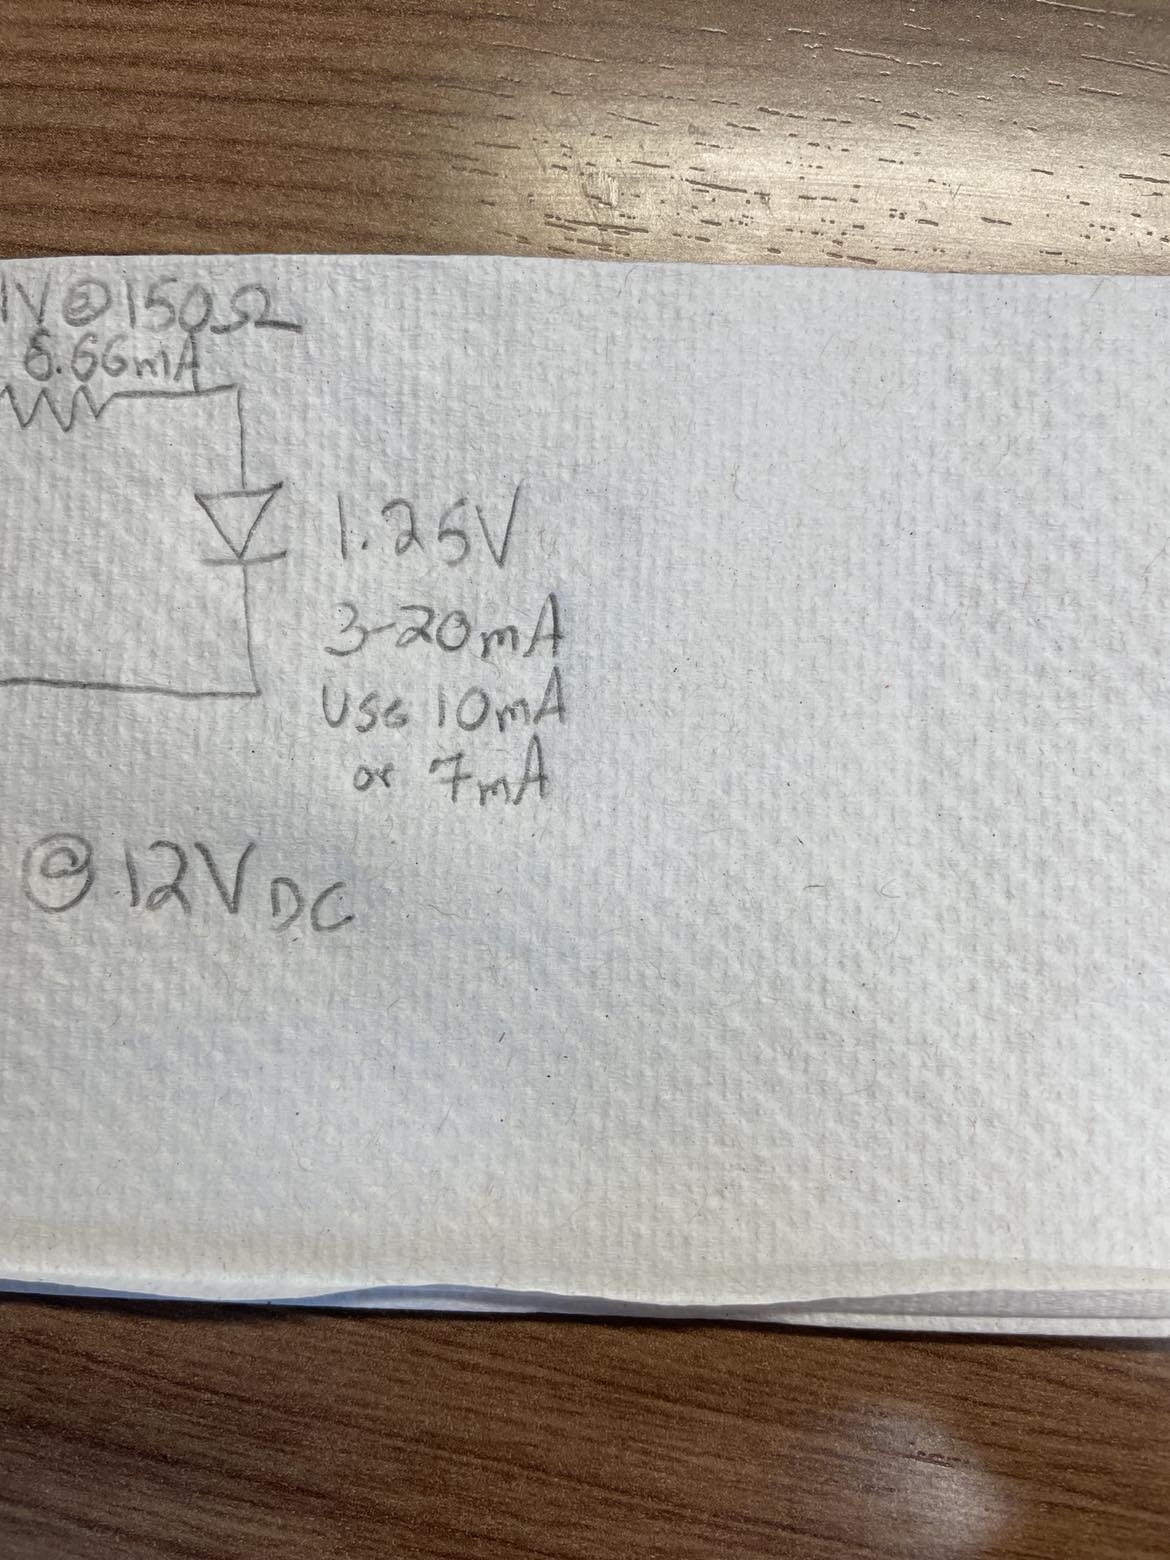 1V @ 150Ω
6.66mA
1.25V
3-20mA
use 10mA
or 7mA
@ 12V DC